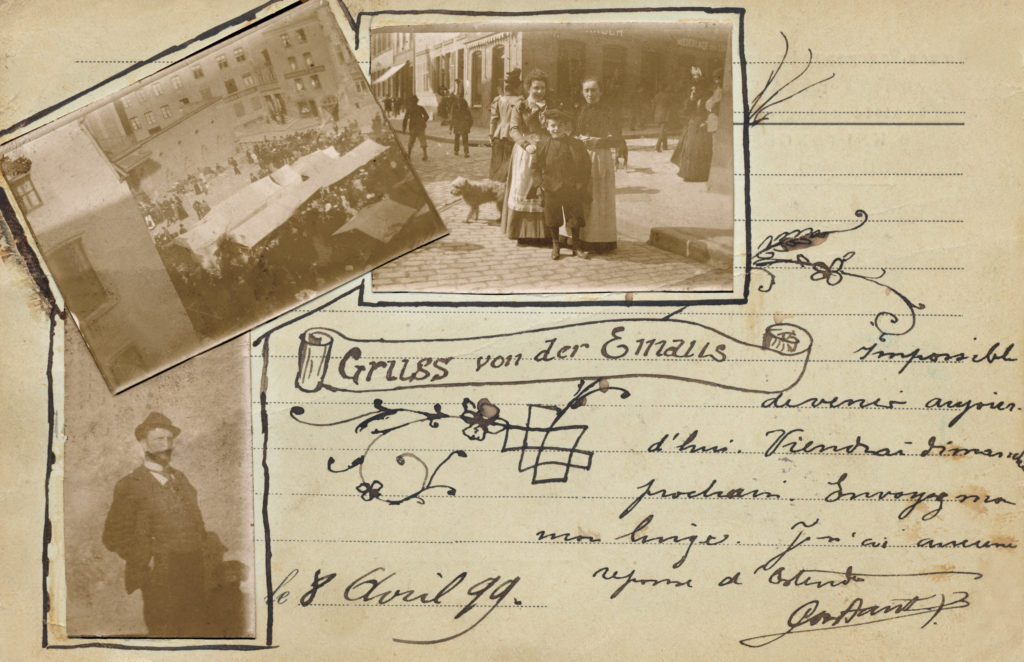 Gruss von der Emaus
Impossibl
de venir aujour-
d'hui. Viendrai dimanche
prochain. Envoyez moi
mon linge. Je n'ai aucune
reponse d' Ostende
Constant B
le 8 Avril 99.